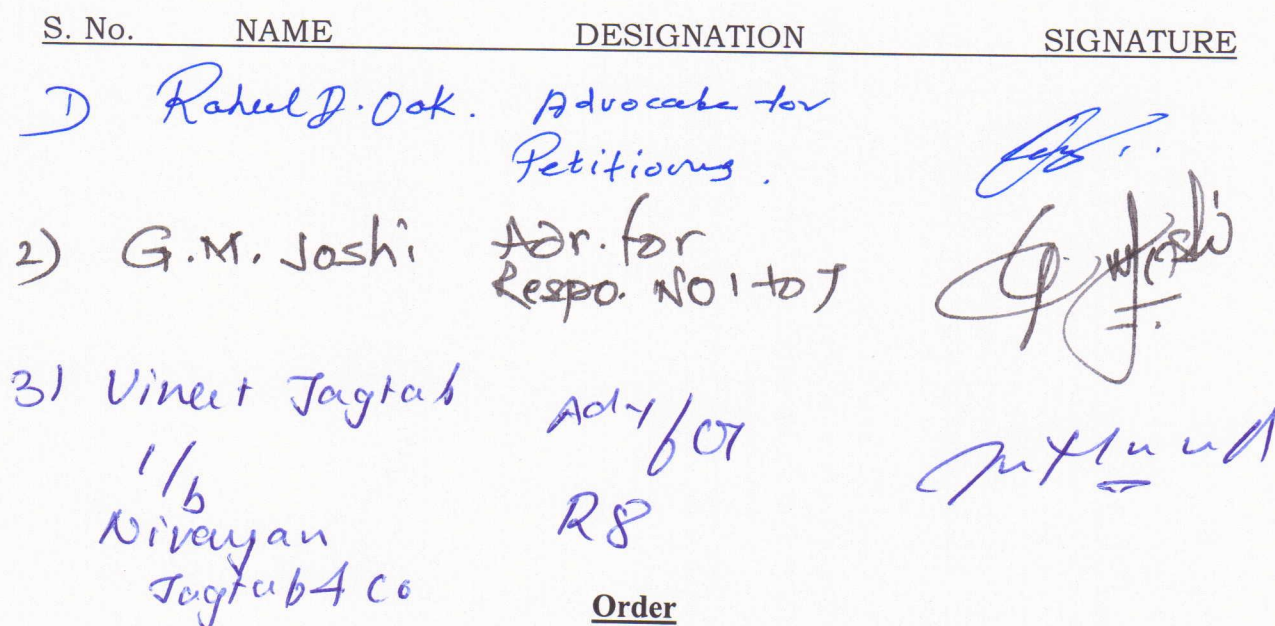 S. No. NAME DESIGNATION SIGNATURE
1) Rahul D. Oak. Advocate for
Petitioners.
2) G.M. Joshi Adv. for
Respo. No 1 to 7
3) Vineet Jagtab Adv for
i/b R8
Niranjan
Jagtab & Co
Order